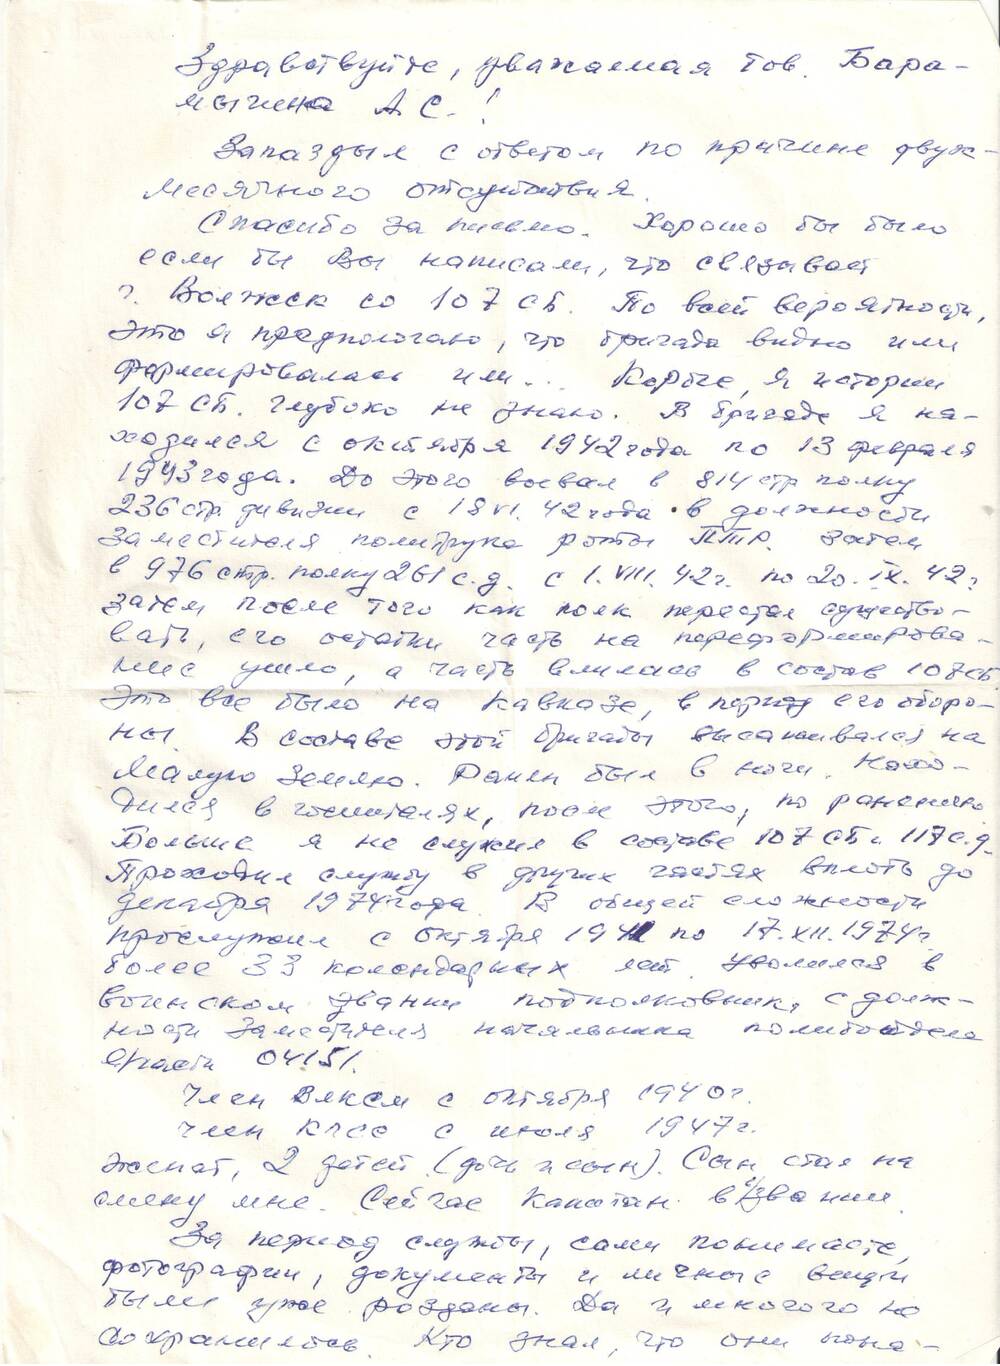 Здравствуйте, уважаемая тов. Бара-
мыгина А С.!
Запаздыл с ответом по причине двух-
месячного отсутствия.
Спасибо за письмо. Хорошо бы было
если бы Вы написали, что связывает
г. Волжск со 107 СБ. По всей вероятности,
это я предпологаю, что бригада видно или
формировалась или... Короче, я истории
107 СБ. глубоко не знаю. В бригаде я на-
ходился с октября 1942 года по 13 февраля
1943 года. До этого воевал в 814 стр полку
236 стр. дивизии с 18 VI. 42 года в должности
заместителя политрука роты ПТР. Затем
в 976 стр. полку 261 с.д. с 1. VIII. 42 г. по 20. IX. 42 г
Затем после того как полк перестал существо-
вать, его остатки часть на переформирова-
ние ушло, а часть влились в состав 107 СБ.
Это все было на Кавказе, в период его оборо-
ны. В составе этой бригады высаживался на
Малую Землю. Ранен был в ночи. Нахо-
дился в госпиталях, после этого, по ранению.
Больше я не служил в составе 107 СБ и 117 с.д.
Проходил службу в других частях вплоть до
декабря 1974 года. В общей сложности
прослужил с октября 1941 по 17. XII. 1974 г.
более 33 колендарных лет. Уволился в
воинском звании подполковник, с долж-
ности Заместителя начальника политотдела
в/части 04151.
Член Влксм с октября 1940 г.
Член КПСС с июля 1947 г.
Женат, 2 детей (дочь и сын). Сын стал на
смену мне. Сейчас Капитан в звании.
За период службы, сами понимаете,
фотографии, документы и личные вещи
были уже розданы. Да и многого не
сохранилось. Кто знал, что они пона-